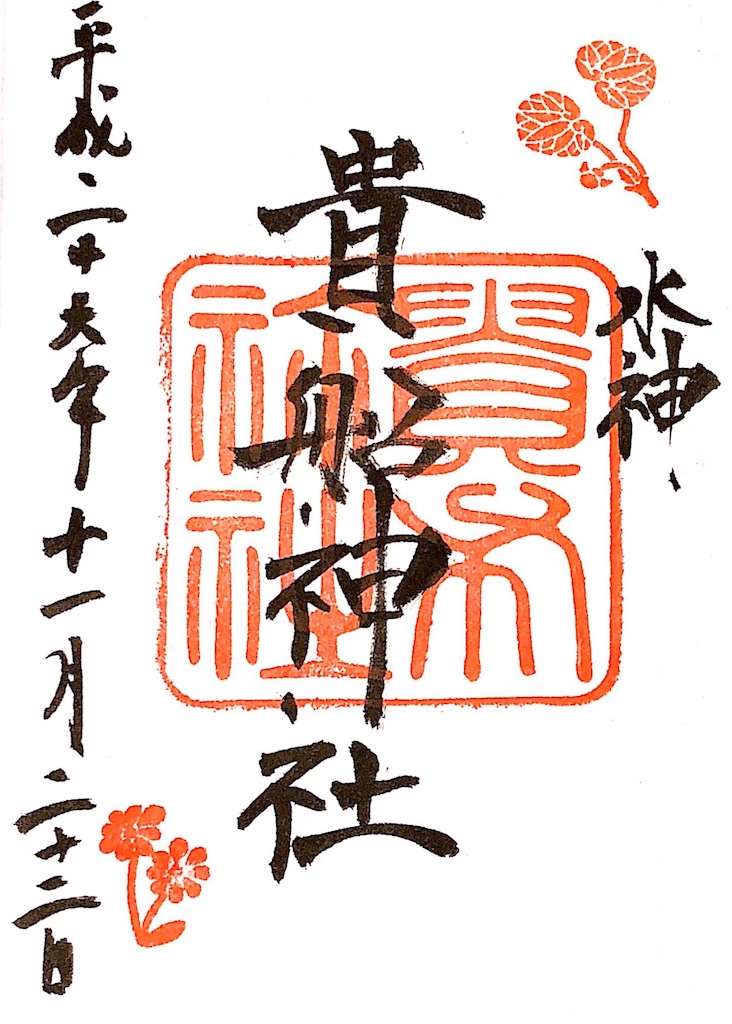 水神
貴船神社
平成二十六年十一月二十二日